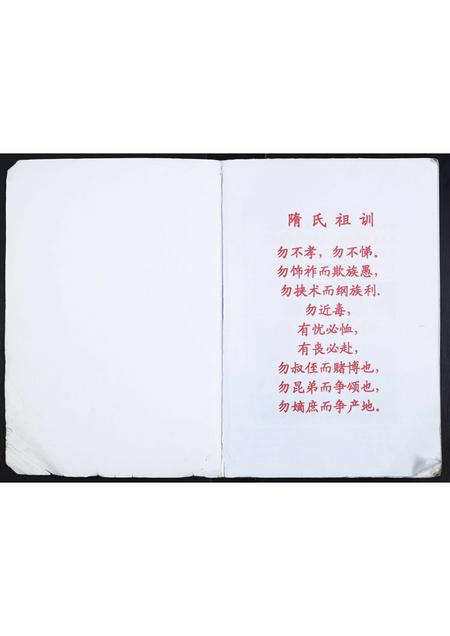 隋氏祖训
勿不孝，勿不悌。
勿饰祚而欺族愚，
勿挟术而纲族利.
勿近毒，
有忧必恤，
有丧必赴，
勿叔侄而赌博也，
勿昆弟而争颂也，
勿嫡庶而争产地。